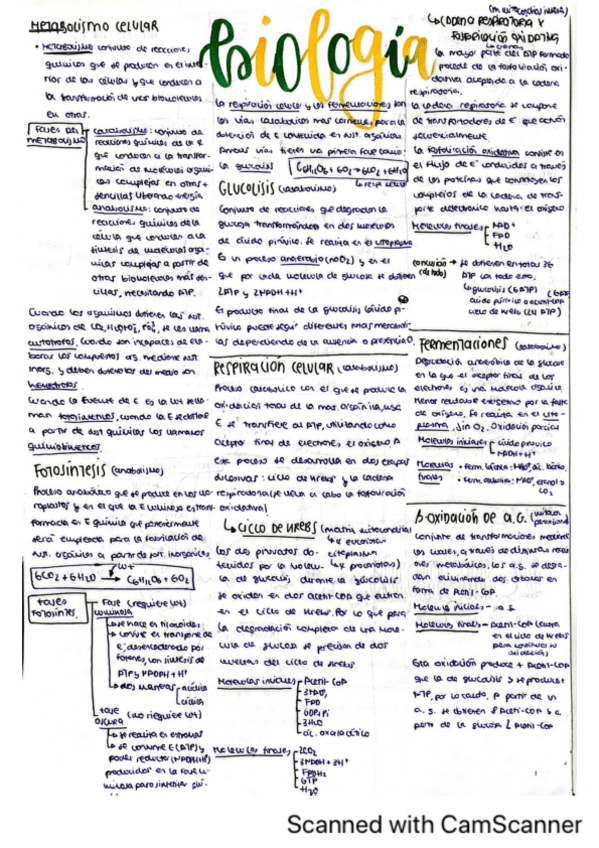 METABOLISMO CELULAR
biología
• METABOLISMO conjunto de reacciones
químicas que se producen en el inte-
rior de las células y que conducen a
la transformación de unas biomoléculas
en otras.
FASES DEL METABOLISMO
catabolismo: conjunto de
reacciones químicas de la
que conducen a la transfor-
mación de moléculas orgáni-
cas complejas en otras +
sencillas liberando energía
anabolismo: conjunto de
reacciones químicas de la
célula que conducen a la
síntesis de moléculas orgá-
nicas complejas a partir de
otras biomoléculas más sen-
cillas, necesitando ATP.
Cuando los organismos obtienen sus nut.
orgánicos de CO2, H2O, se les llama
autótrofos. Cuando son incapaces de ela-
borar los compuestos org. mediante nut.
inorg. y deben obtenerlos del medio son
heterótrofos
Cuando la fuente de E es la luz se lla-
man fotosintéticos, cuando la E se obtiene
a partir de rxs químicas los llamamos
quimiosintéticos
FOTOSÍNTESIS (anabolismo)
Proceso anabólico que se produce en los clo-
roplastos y en el que la E lumínica es trans-
formada en E química que posteriormente
será empleada para la fabricación de
nut. orgánicos a partir de nut. inorgánicos.
6CO2 + 6H2O → C6H12O6 + 6O2
FASES FOTOSÍNTES.
Fase luminosa (requiere luz)
↳ se hace en tilacoides
↳ consiste en transporte de
e-, desencadenado por
fotones, con síntesis de
ATP y NADPH + H+
↳ dos maneras acíclica
cíclica
fase oscura (no requiere luz)
↳ se realiza en estroma
↳ se consume E (ATP) y
poder reductor (NADPH)
producidos en la fase lu-
minosa para sintetizar
La respiración celular y las fermentaciones son
las vías catabólicas más corrientes para la
obtención de E contenida en nut. orgánicos
Ambas vías tienen una primera fase común:
la glucólisis
C6H12O6 + 6O2 → 6CO2 + 6H2O
↳ resp. celular
GLUCÓLISIS (catabolismo)
Conjunto de reacciones que degradan la
glucosa transformándola en dos moléculas
de ácido pirúvico. Se realiza en el citoplasma
Es un proceso anaerobio (no O2) y en el
que por cada molécula de glucosa se obtienen
2ATP y 2NADH + H+
El producto final de la glucólisis (ácido pi-
rúvico puede seguir diferentes rutas metabóli-
cas dependiendo de la ausencia o presencia O2.
RESPIRACIÓN CELULAR (catabolismo)
Proceso catabólico con el que se produce la
oxidación total de la mat. orgánica, cuya
E se transfiere al ATP, utilizando como
aceptor final de electrones el oxígeno.
Ese proceso se desarrolla en dos etapas
sucesivas: ciclo de Krebs y la cadena
respiratoria (se lleva a cabo la fosforilación
oxidativa)
↳ CICLO DE KREBS (matriz mitocondrial)
↳ eucariotas
citoplasma
↳ procariotas)
Los dos piruvatos ob-
tenidos por la molécu-
la de glucosa, durante la glucólisis
se oxidan en dos acetil-CoA que entran
en el ciclo de Krebs. Por lo que para
la degradación completa de una molé-
cula de glucosa se precisan de dos
vueltas del ciclo de Krebs
Moléculas iniciales
Acetil-CoA
3NAD+
FAD
GDP + Pi
3H2O
ác. oxalacético
Moléculas finales
2CO2
3NADH + 3H+
FADH2
GTP
H2O
(m. mitocondrial interna)
↳ CADENA RESPIRATORIA Y
FOSFORILACIÓN OXIDATIVA
La mayor parte del ATP formado
procede de la fosforilación oxi-
dativa acoplada a la cadena
respiratoria.
La cadena respiratoria se compone
de transportadores de e- que actúan
secuencialmente.
La fosforilación oxidativa consiste en
el flujo de e- conducidos a través
de las proteínas que constituyen los
complejos de la cadena de trans-
porte de electrones hasta el oxígeno
Moléculas finales
NAD+
FAD
H2O
conclusión (de todo) → se obtienen en total 38
ATP con todo esto.
↳ glucólisis (8ATP) (6ATP
ácido pirúvico a acetil-CoA
ciclo de Krebs (24 ATP)
FERMENTACIONES (catabolismo)
Degradación anaerobia de la glucosa
en la que el aceptor final de los
electrones es una molécula orgánica.
Menor rendimiento energético por la falta
de oxígeno. Se realiza en el cito-
plasma. Sin O2. Oxidación parcial
Moléculas iniciales
ácido pirúvico
NADH + H+
Moléculas finales
• ferm. láctica: NAD+, ác. láctico.
• ferm. alcohólica: NAD+, etanol y
CO2
β-OXIDACIÓN DE A.G.
Conjunto de transformaciones mediante
las cuales, a través de distintas reaccio-
nes metabólicas, los a.g. se degra-
dan eliminando dos carbonos en
forma de Acetil-CoA.
Molécula inicial - a.g.
Moléculas finales - Acetil-CoA (entra
en el ciclo de Krebs
para continuar su
oxidación)
Esta oxidación produce + Acetil-CoA
que la de glucólisis y se produce +
ATP, por lo tanto, a partir de un
a.g. se obtienen 8 Acetil-CoA y a
partir de la glucosa 2 Acetil-CoA
Scanned with CamScanner